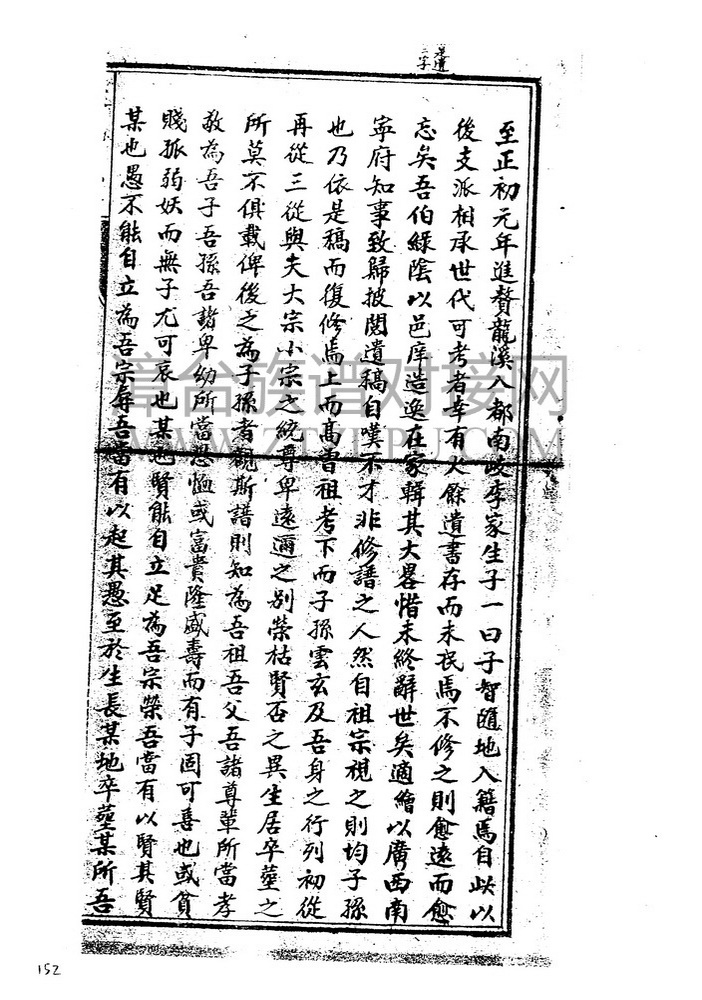 至正初元年進贅龍溪八都南岐李家生子一曰子智隨地入籍焉自此以
後支派相承世代可考者幸有火餘遺書存而未泯焉不修之則愈遠而愈
忘矣吾伯綠蔭以邑庠造逸在家輯其大畧惜未終辭世矣適繪以廣西南
寧府知事致歸披閱遺稿自嘆不才非修譜之人然自祖宗視之則均子孫
也乃依是稿而復修焉上而高曾祖考下而子孫雲玄及吾身之行列初從
再從三從與夫大宗小宗之統尊卑遠邇之別榮枯賢否之異生居卒塟之
所莫不俱載俾後之為子孫者觀斯譜則知為吾祖吾父吾諸尊輩所當孝
敬為吾子吾孫吾諸卑幼所當恕恤或富貴隆盛壽而有子固可喜也或貧
賤孤弱妖而無子尤可哀也某也賢能自立足為吾宗榮吾當有以賢其賢
某也愚不能自立為吾宗辱吾當有以起其愚至於生長某地卒塟某所吾
章台族谱对接网
152